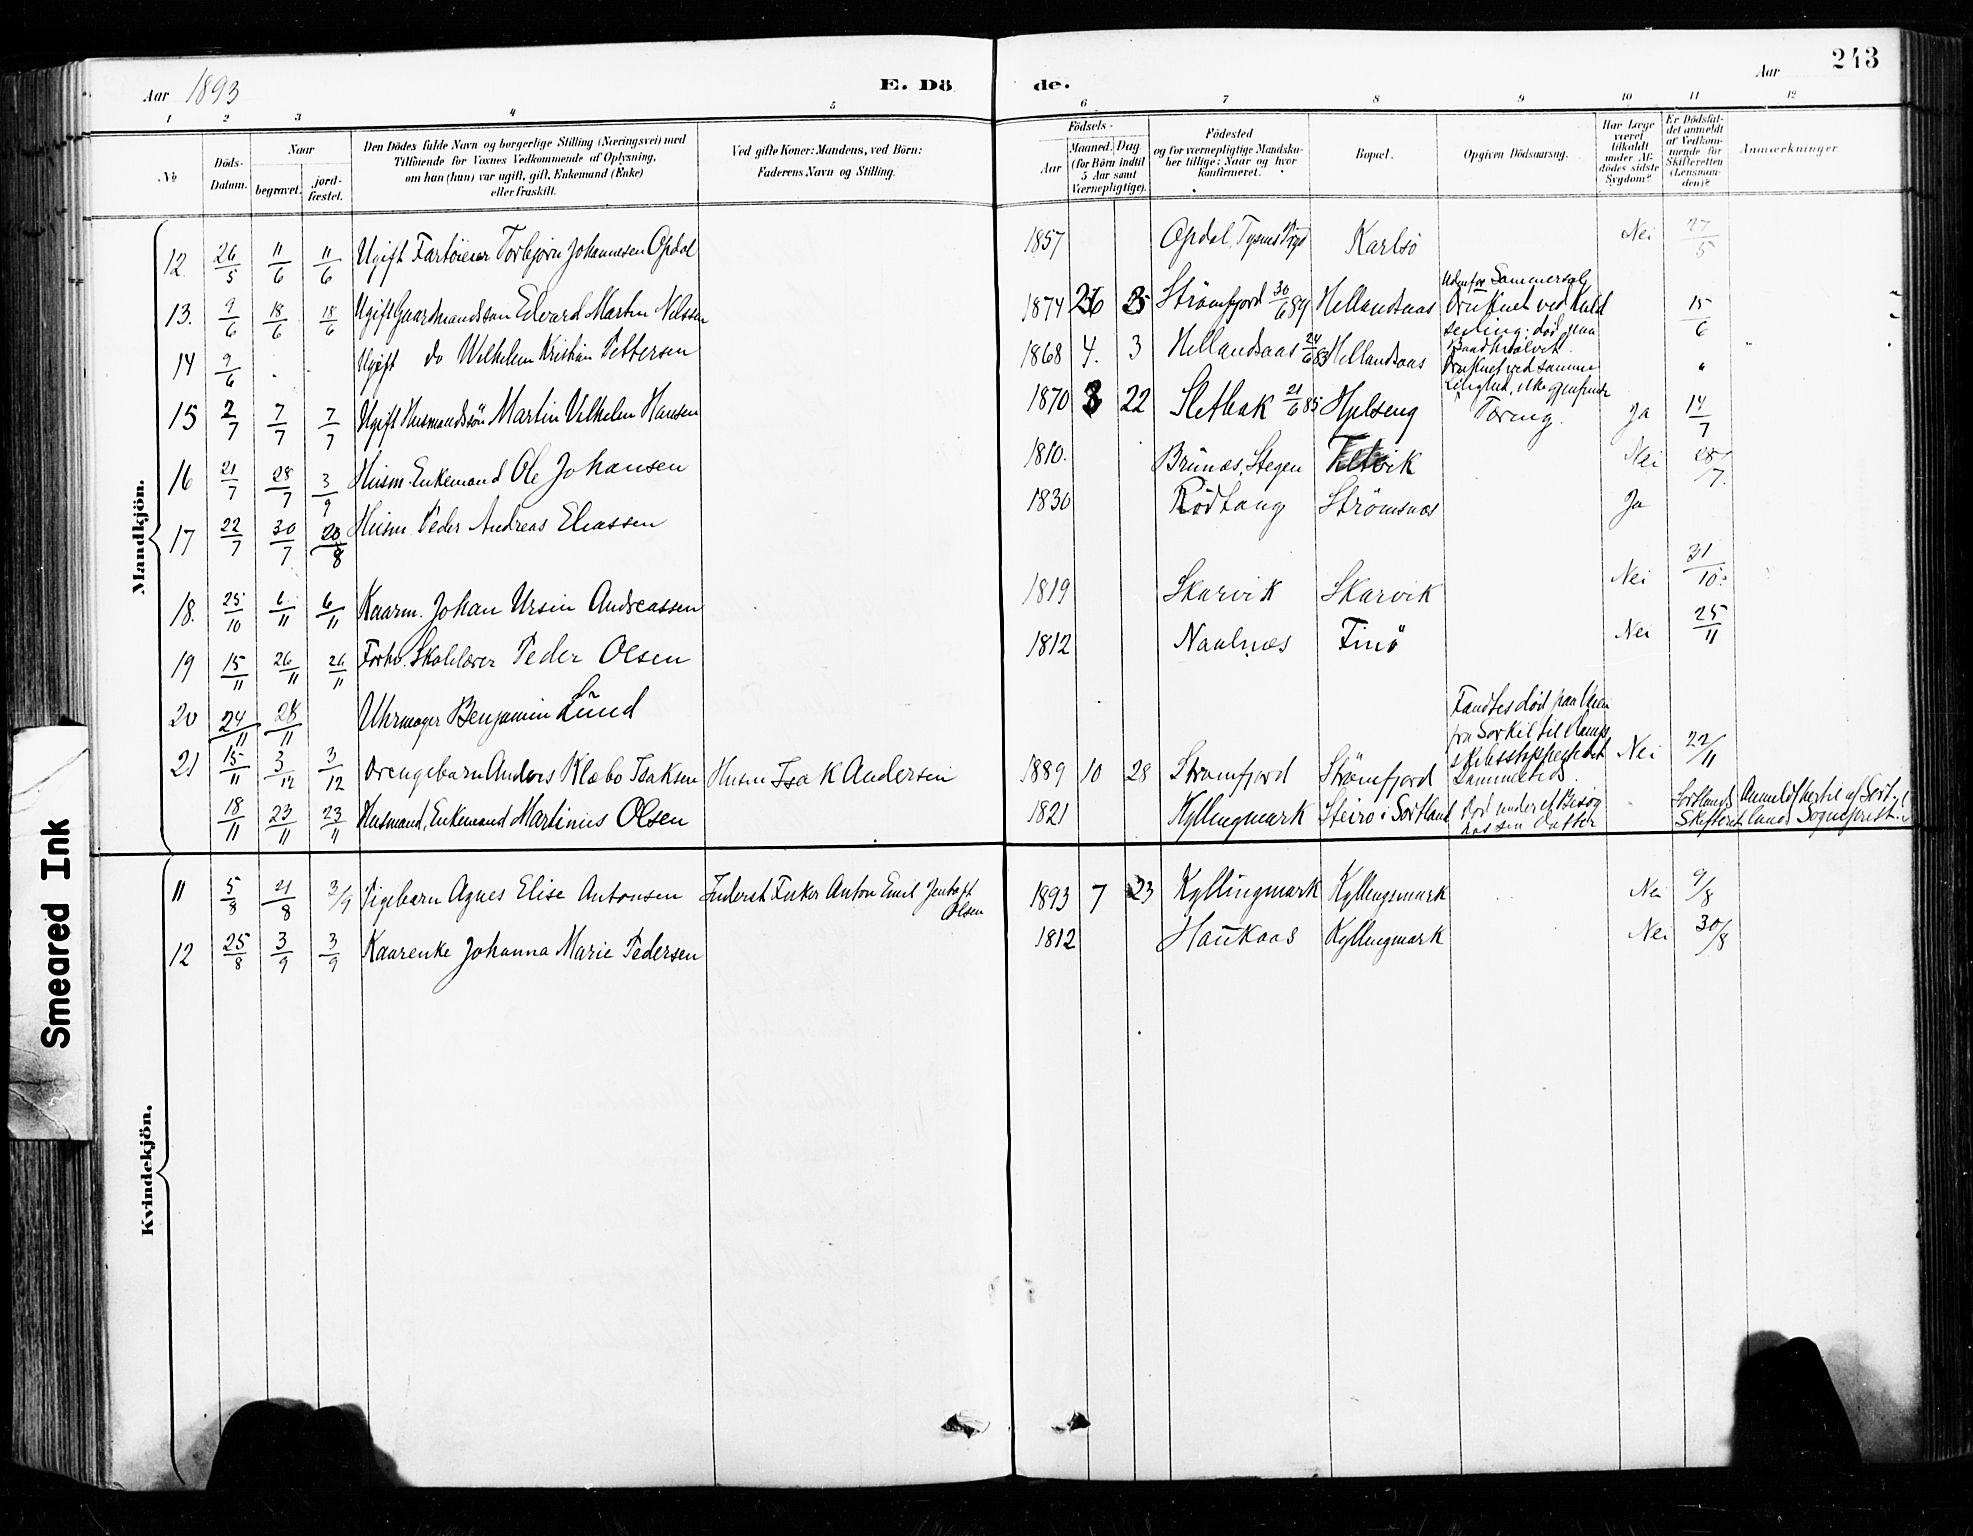 243
Aar 1893
E. Dö
de.
Aar
1 2 3 4 5 6 7 8 9 10 11 12
No
Döds-Datum.
Naar
begravet.
jord-fæstet.
Den Dödes fulde Navn og borgerlige Stilling (Næringsvei) med
Tilföiende for Voxnes Vedkommende af Oplysning,
om han (hun) var ugift, gift, Enkemand (Enke)
eller fraskilt.
Ved gifte Koner: Mandens, ved Börn:
Faderens Navn og Stilling.
Födsels-
Aar
Maaned. Dag
(for Börn indtil
5 Aar samt
Værnepligtige).
Födested
og for værnepligtige Mandskaber tillige: Naar og hvor
konfirmeret.
Bopæl.
Opgiven Dödsaarsag.
Har Læge
været
tilkaldt
under Afdödes sidste
Sygdom?
Er Dödsfaldet anmeldt
af Vedkommende for
Skifteretten
(Lensmanden)?
Anmærkninger
Mandkjön.
12. 26/5 11/6 11/6 Ugift Fartöieier Torbjørn Johannesen Opdal 1857 Opdal, Tysnes Karlsö Nei 27/5
13. 9/6 18/6 18/6 Ugift Gaardmandssøn Edvard Martin Nilssen 1874 Strömfjord 30/6 89 Hellandsaas Udenfor Sommersæl Druknet ved Kuldseiling; 15/6
14 9/6 Ugift do Wilhelm Kristian Pettersen 1868 4. 3 Hellandsaas 24/6 83 Hellandsaas Druknet ved samme Leilighed, ikke gjenfunden "
15 2/7 7/7 7/7 Ugift Husmandssön Martin Vilhelm Hansen 1870 3 22 Sletbak 21/6 85 Hjelseng Tæring. Ja 14/7
16 21/7 28/7 3/9 Husm. Enkemand Ole Johansen 1810. Brunæs, Stegen Nei 28/7.
17 22/7 30/7 20/8 Husm. Peder Andreas Eliassen 1830 Rödtang Strömsnæs Ja
18. 25/10 6/11 6/11 Kaarm. Johan Ursin Andreassen 1819 Skarvik Skarvik Nei 31/10
19 15/11 26/11 26/11 Forhv. Skolelærer Peder Olsen 1812 Naalnæs Finö Nei 25/11
20 24/11 28/11 Uhrmager Benjamin Lund
21 15/11 3/12 3/12 Drengebarn Anders Klæbo Isaksen Husm Isak Andersen 1889 10 28 Strömfjord Strömfjord Fandtes död paa Veien fra Sorkil til Nei 22/11
18/11 23/11 23/11 Husmand, Enkemand Martinius Olsen 1821 Kyllingmark Steiro i Sortland Död under et Besøg hos sin Datter Sortlands Skifteret Anmeldt hertil af Sortlands Sognepræst.
Kvindekjön.
11 5/8 21/8 3/9 Pigebarn Agnes Elise Antonsen Inderst Fisker Anton Emil Jentoft Olsen 1893 7 23 Kyllingmark Kyllingmark Nei 9/8
12 25/8 3/9 3/9 Kaarenke Johanna Marie Pedersen 1812 Haukaas Kyllingmark Nei 30/8
Smeared Ink